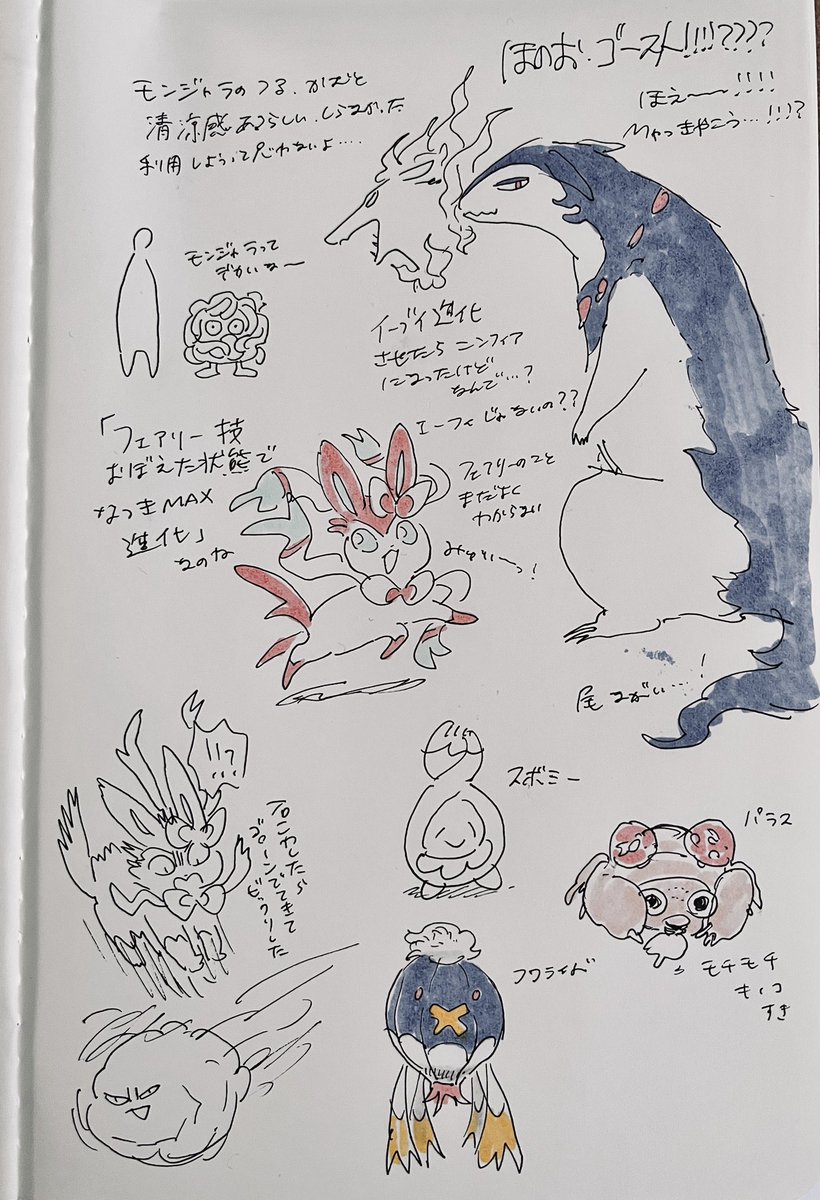 ほのお・ゴースト!!!????
ほえ〜〜!!!!
ひゃっきやこう…!!!?
モンジャラのつる、かむと
清涼感あるらしい、しらなかった
利用しようって思わないよ….
モンジャラって
でかいな〜
イーブイ進化
させたら ニンフィア
になったけど
なんで…?
エーフィじゃないの??
「フェアリー技
おぼえた状態で
なつきMAX
進化」
なのね
フェアリーのこと
まだよく
わからない
みゅいーっ!
尾 ながい…!
!!?
石こわしたら
ゴローンでてきて
ビックリした
スボミー
パラス
モチモチ
キノコ
すき
フワライド